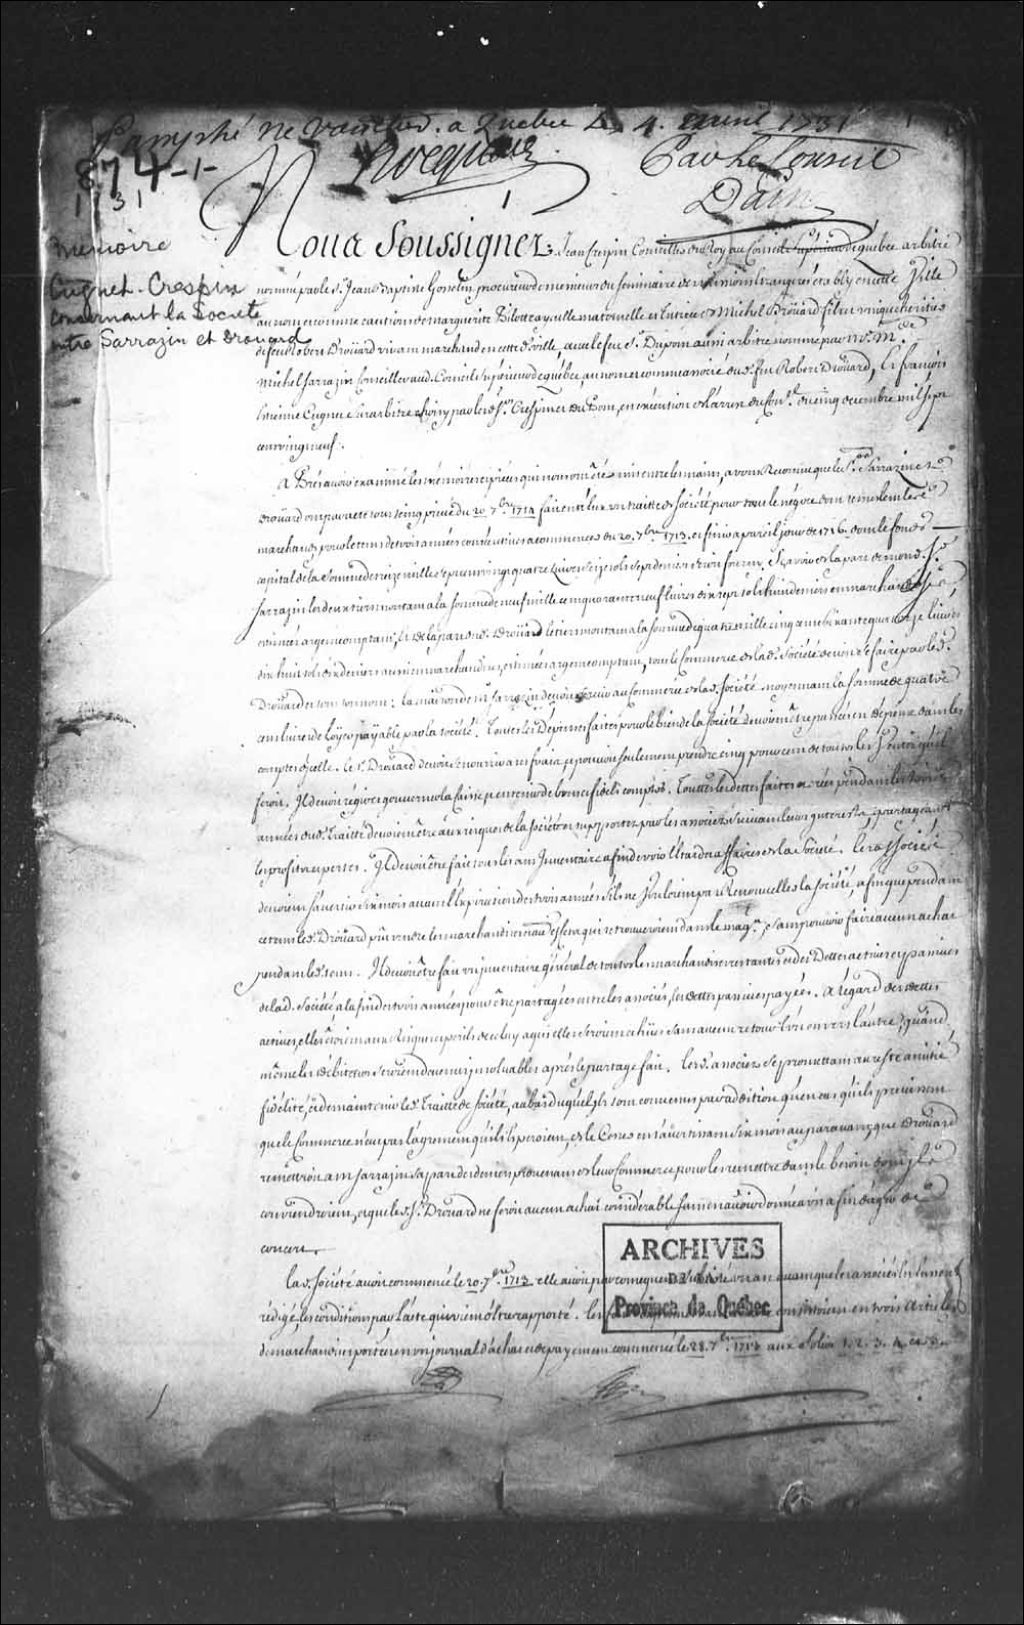 Paraphé ne varietur. a Quebec Le 4. avril 1731
Hocquart
Par Le Conseil
Daine
874-1-
1731
Memoire
Cugnet. Crespin
concernant la Societé
entre Sarrazin et Drouard
Nous Soussignez. Jean Crespin Conseiller du Roy au Conseil Superieur de quebec arbitre
nommé par le s. Jean Baptiste Gosselin, procureur de messieurs du Seminaire des missions etrangeres étably en cette Ville
au nom et comme caution de marguerite Pilotte ayeulle maternelle et tutrice de Michel Drouard, fils et unique heritier
de feu Robert Drouard vivant marchand en cette d. ville, avec le feu s. Dupont aussi arbitre nommé par
Michel Sarrazin Conseiller aud. Conseil Superieur de quebec, au nom et comme associé dud. feu Robert Drouard, Et françois
Etienne Cugnet surarbitre choisy par les d. Srs. Crespin et Dupont, en execution de l'arrest du Conl. du cinq decembre mil sept
cent vingt neuf.
Après avoir examiné les mémoires et pieces qui nous ont été mis entre les mains, avons Reconnu que les Srs. Sarrazin et
Drouard ont passé sous seing privé du 20 7bre 1714 fait entr'eux un traitté de société pour tout le négoce
marchands pour le tems de trois années consecutives a commencer du 20. 7bre 1713. et finir a pareil jour de 1716. dont le fonds
capital de la Somme de treize mille sept cent vingt quatre Livres seize sols sept deniers devoit fournir, Sçavoir de la part de mond. Sr.
Sarrazin les deux tiers montant a la Somme de neuf mille cent quarante neuf livres dix sept sols huit deniers en marchandises
estimées argent comptant, Et de la part dud. Drouard le tiers montant a la Somme de quatre mille cinq cent soixante quatorze livres
dix huit sols dix deniers aussi en marchandises, estimées argent comptant, tout le Commerce de lad. Société devoit se faire par led.
Drouard et sous son nom; la maison de mr. Sarrazin devoit servir au Commerce de lad. société moyennant la somme de quatre
cent livres de loyer payable par la société. Toutes les Dépenses faites pour le bien de la société devoient être passées en dépense dans les
comptes d'icelle. le s. Drouard devoit se nourrir a ses frais, et pouvoit seulement prendre cinq pour cent de toutes les Ventes qu'il
feroit. Il devoit régir et gouverner la caisse, et en tenir de bons et fidels comptes. Toutes les dettes faites et créées pendant les trois
années dud. Traitté devoient être aux risques de la société et supportées par les associés suivant leurs interests, partageant
les profits et pertes. Il devoit être fait tous les ans Inventaire afin de voir l'état des affaires de la Société. les associés
devoient s'avertir six mois avant l'Expiration des trois années s'ils ne vouloient pas Renouveller la société, afin que pendant
ce tems led. Drouard pût vendre les marchandises et effets qui se trouveroient dans le magn. sans pouvoir faire aucun achat
pendant led. tems. Il devoit être fait un inventaire général de toutes les marchandises restantes et des Dettes actives et passives
de lad. société a la fin des trois années pour être partagées entre les associés, les dettes passives payées. A l'égard des dettes
actives, elles étoient aux Risques et perils de celuy a qui elles seroient echües sans aucun retour l'un envers l'autre, quand
même les débiteurs seroient devenus insolvables après le partage fait. Les d. associez se promettant au reste amitié
fidélité, et de maintenir led. Traitté de société, au bas duquel ils sont convenus par addition qu'en cas qu'ils previssent
que le Commerce n'eut pas l'agrément qu'ils esperoient, de le Cesser en s'avertissant six mois auparavant, et que Drouard
remettroit a m Sarrazin sa part des deniers provenants de leur Commerce, pour le remettre dans le besoin dont ils
conviendroient, et que led. Sr. Drouard ne feroit aucun achat considérable sans en avoir donné avis afin d'agir de
concert.
lad. Société avoit commencé le 20. 7bre. 1713 elle avoit par consequent subsisté un an avant que les associés en eussent
rédigé les conditions par l'acte qui vient d'être rapporté. Les consistoient en trois articles
de marchandises portées en un journal d'achat et de payement commencé le 28. 7bre. 1713 aux folios 1. 2. 3. 4. et 5.
ARCHIVES
DE LA
Province de Québec